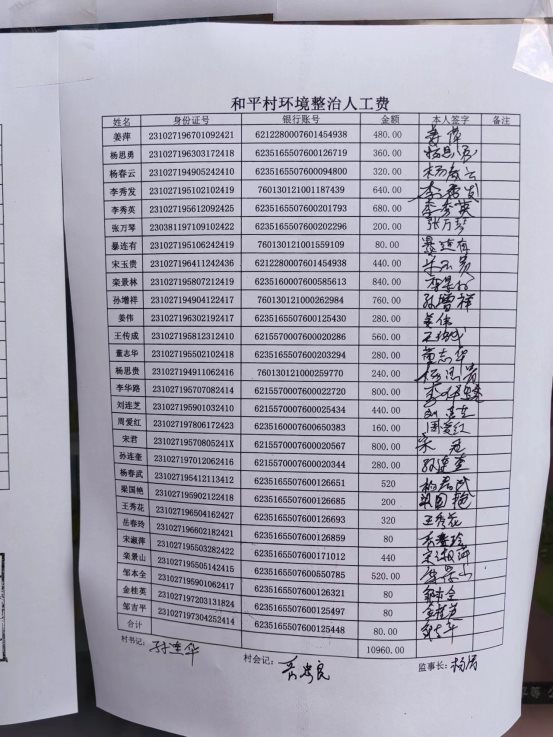 和平村环境整治人工费
姓名 身份证号 银行账号 金额 本人签字 备注
姜萍 231027196701092421 6212280007601454938 480.00 姜萍
杨思勇 231027196303172418 6235165507600126719 360.00 杨思勇
杨春云 231027194905242410 6235165507600094800 320.00 杨春云
李秀发 231027195102102419 760130121001187439 640.00 李秀发
李秀英 231027195612092425 6235165507600201793 680.00 李秀英
张万琴 230381197109102422 6235165507600202296 200.00 张万琴
暴连有 231027195106242419 760130121001559109 80.00 暴连有
宋玉贵 231027196411242436 6212280007601454938 440.00 宋玉贵
栾景林 231027195807212419 6235160007600585613 840.00
孙增祥 231027194904122417 760130121000262984 760.00 孙增祥
姜伟 231027196302192417 6235165507600125430 280.00 姜伟
王传成 231027195812312410 6215570007600020286 560.00 王传成
董志华 231027195502102418 6235165507600203294 280.00 董志华
杨思贵 231027194911062416 760130121000259770 240.00 杨思贵
李华路 231027195707082414 6215570007600022720 800.00 李华路
刘连芝 231027195901032410 6215570007600025434 440.00 刘连芝
周爱红 231027197806172423 6235160007600650383 160.00 周爱红
宋君 23102719570805241X 6215570007600020567 800.00 宋君
孙连奎 231027197012062416 6215570007600020344 280.00 孙连奎
杨春武 231027195412113412 6235165507600126651 520 杨春武
梁国艳 231027195902122418 6235165507600126685 200 梁国艳
王秀花 231027196504162427 6235165507600126693 320 王秀花
岳春玲 231027196602182421 6235165507600126859 80 岳春玲
宋淑萍 231027195503282422 6235165507600171012 440 宋淑萍
栾景山 231027195505142415 6235165507600550785 520.00 栾景山
邹本全 231027195901062417 6235165507600126321 80 邹本全
金桂英 231027197203131824 6235165507600125497 80 金桂英
邹吉平 231027197304252414 6235165507600125448 80.00 邹吉平
合计 10960.00
村书记：孙连华 村会记： 监事长：